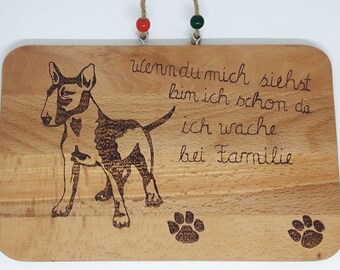 wenn du mich siehst
bin ich schon da
ich wache
bei Familie